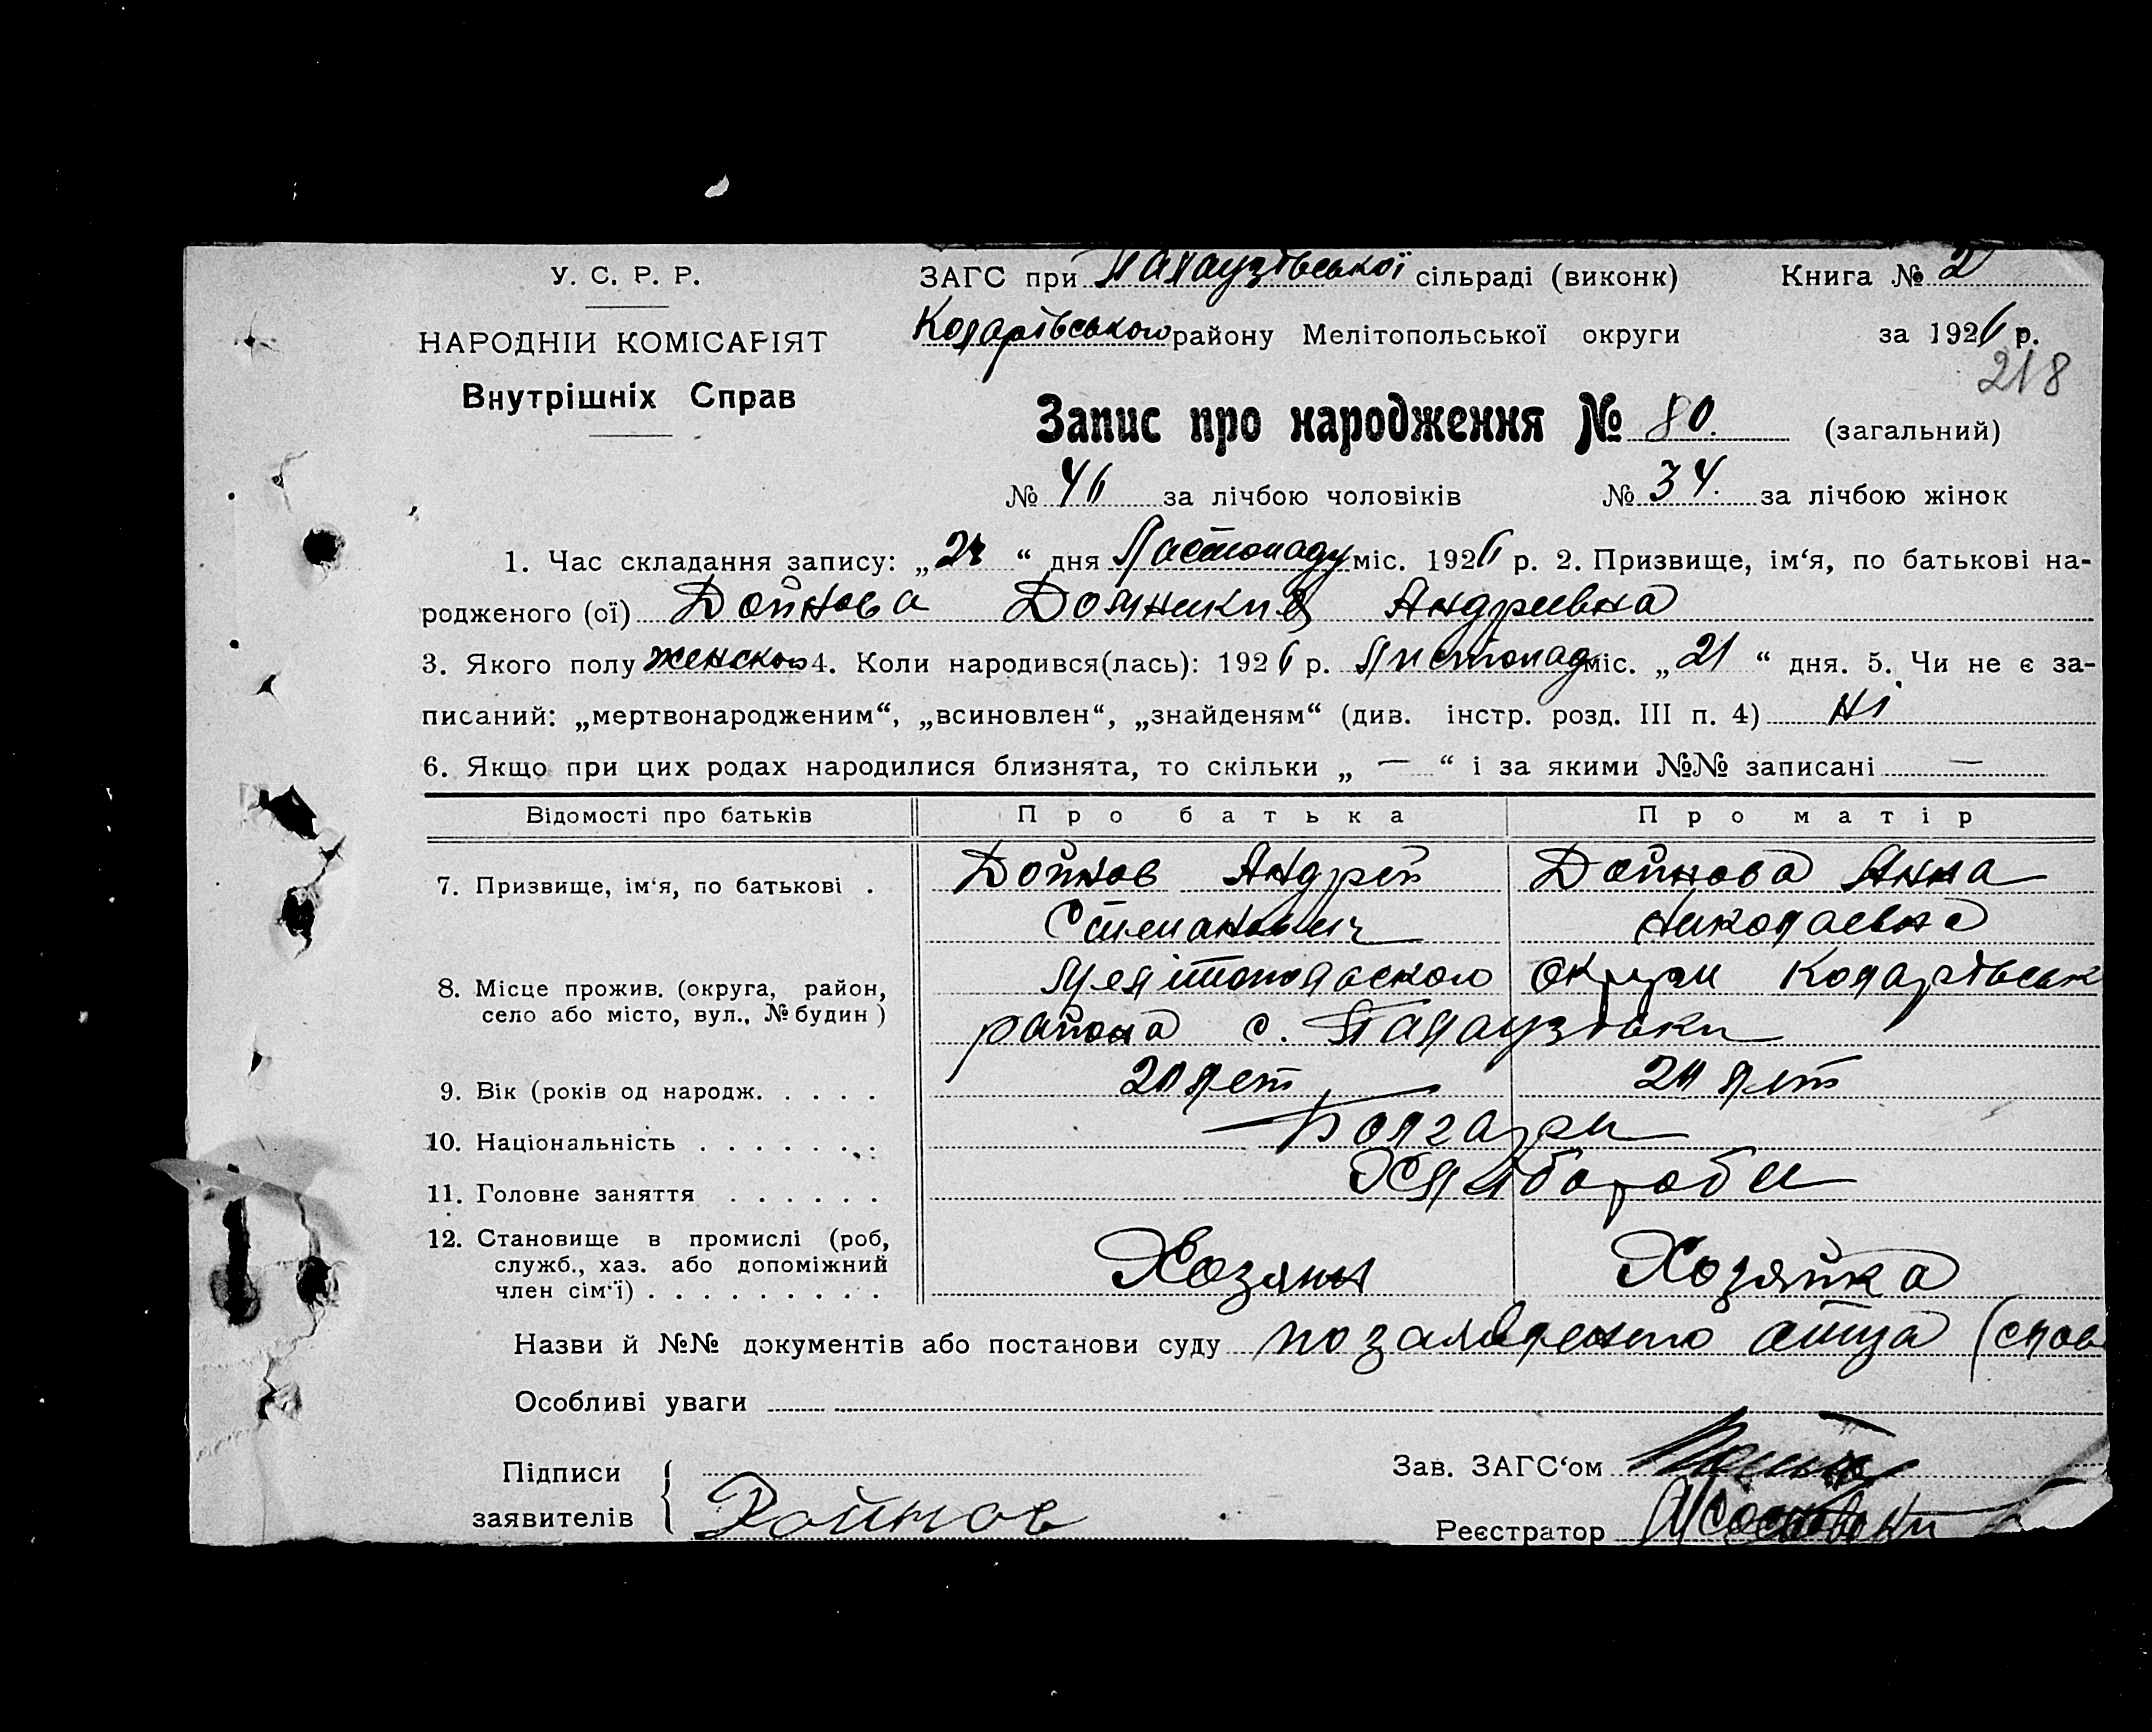 У. С. Р. Р.
НАРОДНІЙ КОМІСАРІЯТ
Внутрішніх Справ
ЗАГС при Палаузівської сільраді (виконк) Книга № 2
Коларівського району Мелітопольської округи за 1926 р.
218
Запис про народження № 80. (загальний)
№ 46 за лічбою чоловіків № 34. за лічбою жінок
1. Час складання запису: „ “ дня Листопаду міс. 1926 р. 2. Призвище, ім‘я, по батькові на-
родженого (ої) Дойнова Домникия Андреевна
3. Якого полу женского 4. Коли народився(лась): 1926 р. Листопад міс. „21“ дня. 5. Чи не є за-
писаний: „мертвонародженим“, „всиновлен“, „знайденям“ (див. інстр. розд. III п. 4) Ні
6. Якщо при цих родах народилися близнята, то скільки „ — “ і за якими №№ записані —
Відомості про батьків Про батька Про матір
7. Призвище, ім‘я, по батькові . Дойнов Андрей Дойнова Анна
Степанович Николаевна
8. Місце прожив. (округа, район, село або місто, вул., № будин) Мелітопольского округи Коларівськ
района с. Палаузівки
9. Вік (років од народж. . . . . 20 лет 20 лет
10. Національність . . . . . . . Болгари
11. Головне заняття . . . . . . Хлібороби
12. Становище в промислі (роб, служб., хаз. або допоміжний член сім‘ї) . . . . . . . . . Хозяин Хозяйка
Назви й №№ документів або постанови суду по заявлению отца (слов
Особливі уваги
Підписи заявителів { Дойнов
Зав. ЗАГС‘ом
Реєстратор